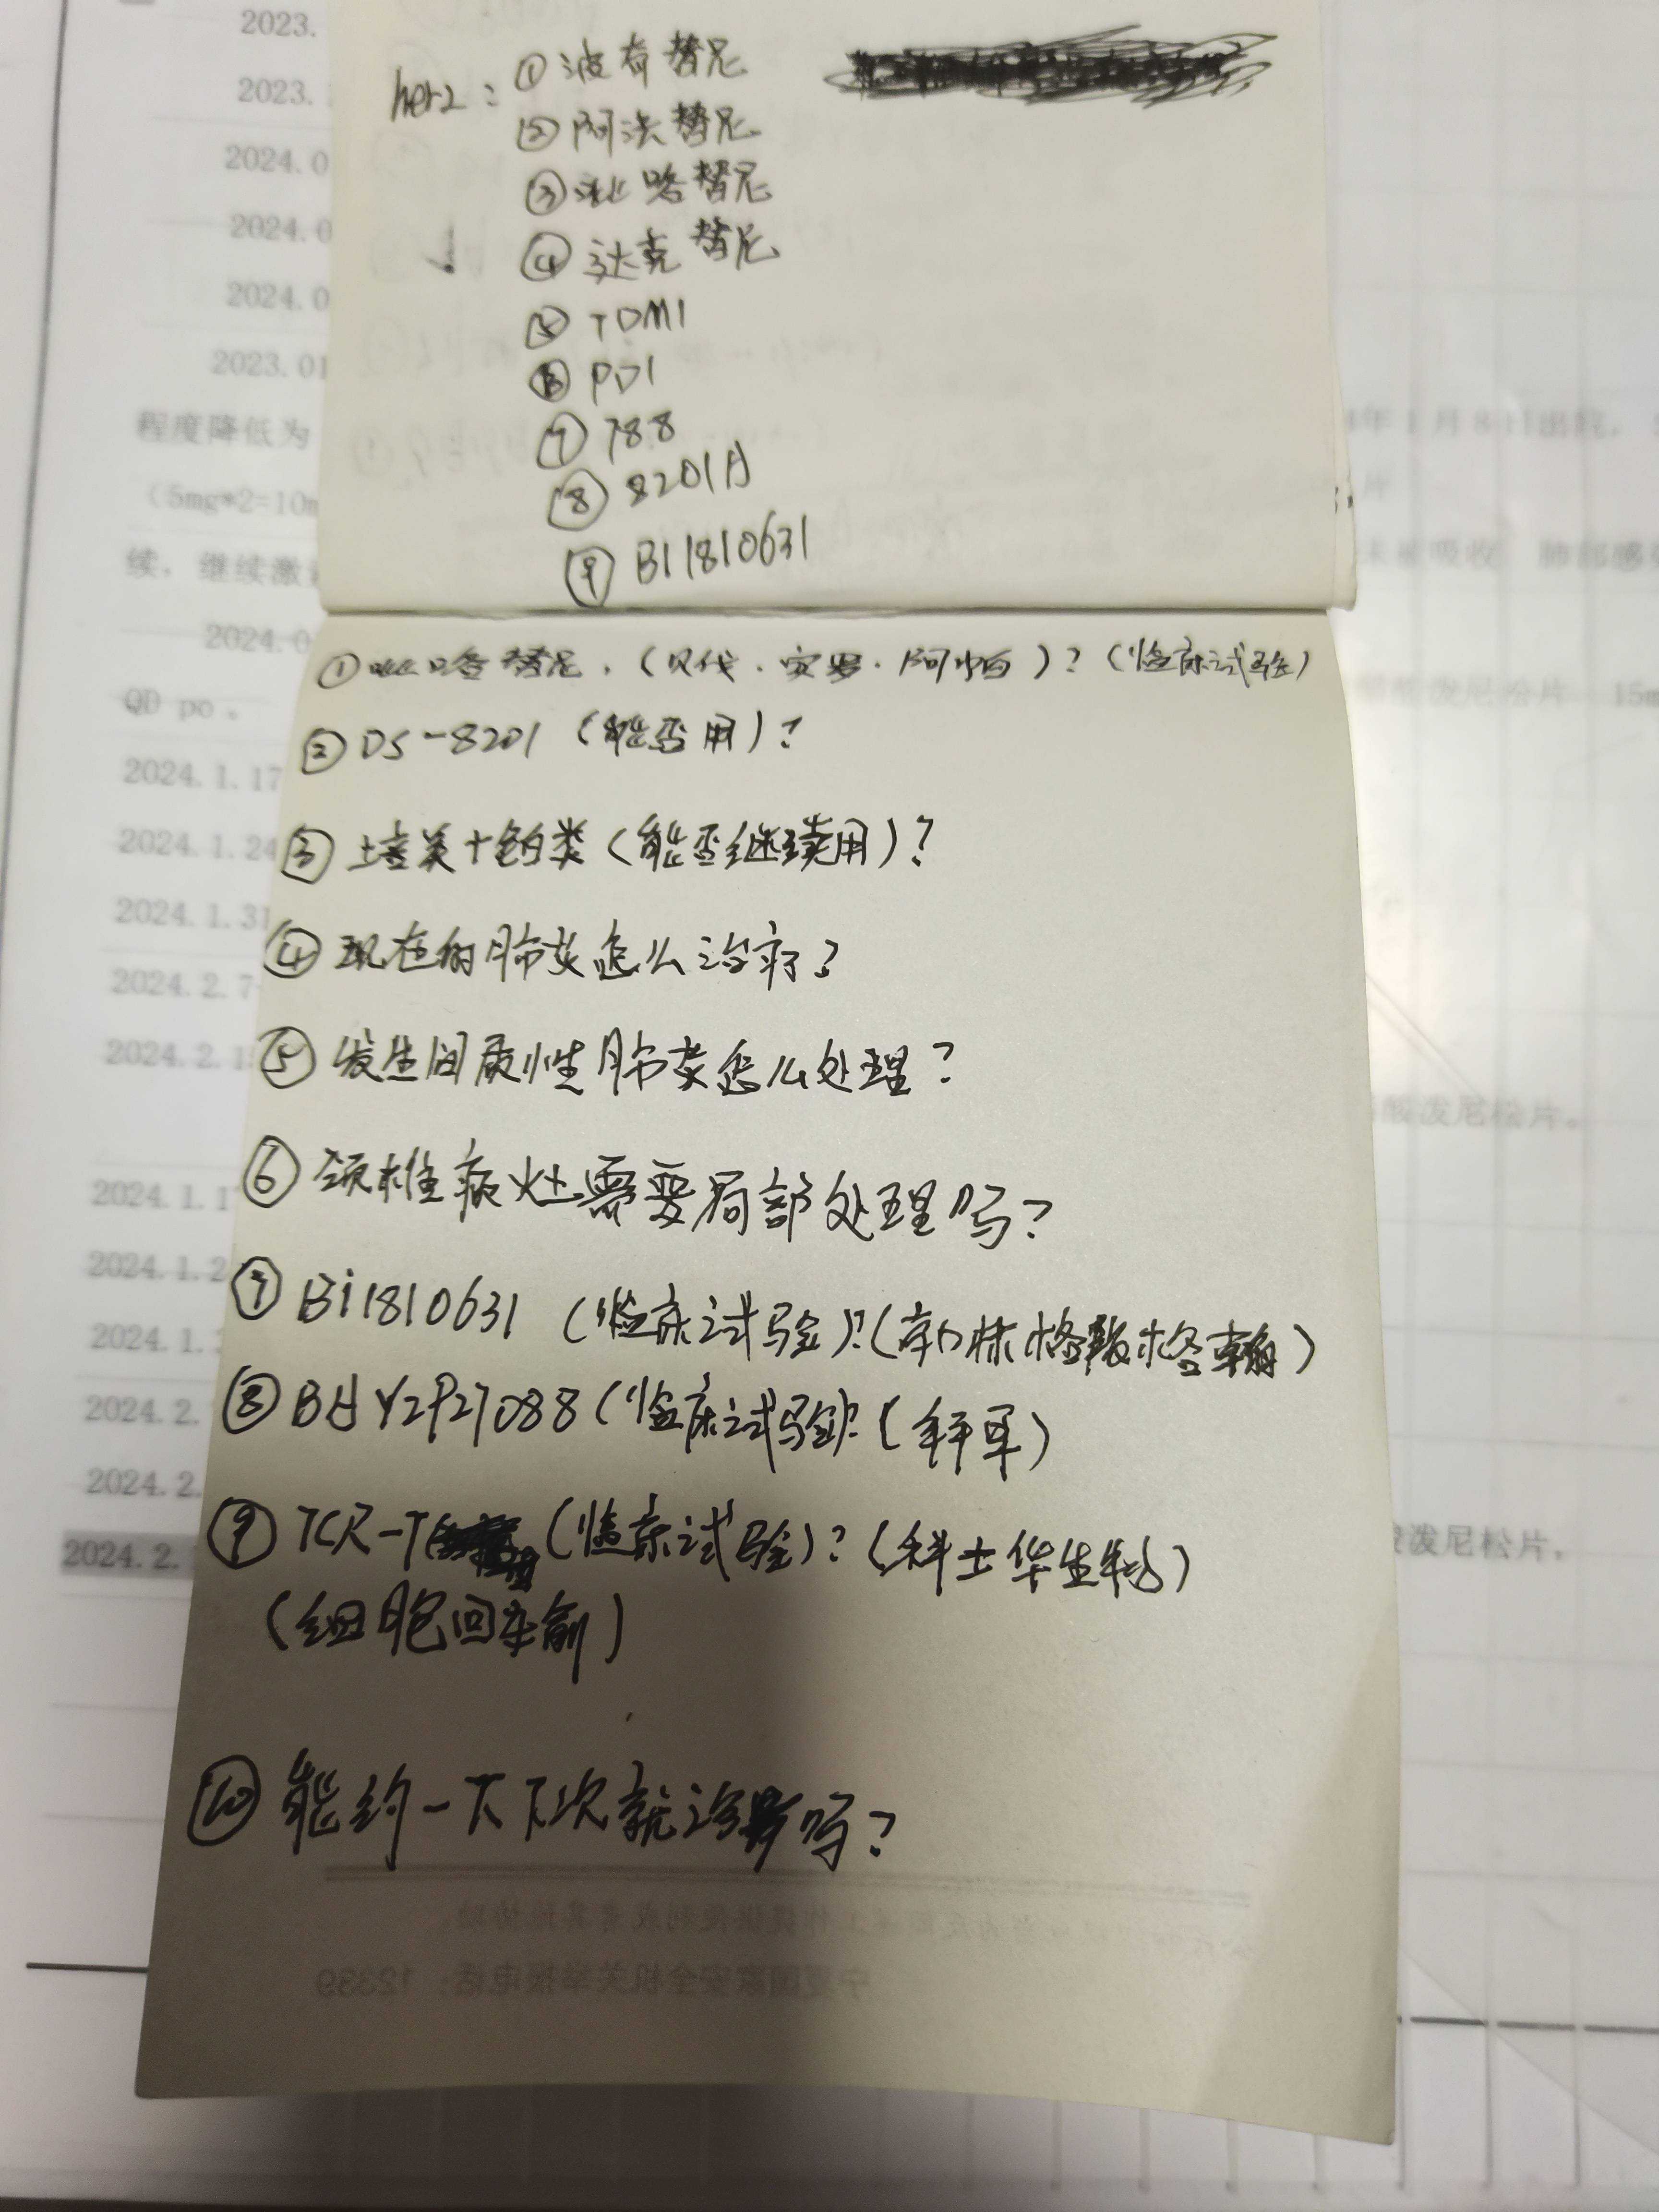 her2：① 波奇替尼
② 阿法替尼
③ 吡咯替尼
④ 达克替尼
⑤ TDM1
⑥ PD1
⑦ 788
⑧ 8201A
⑨ BI1810631
① 吡咯替尼．（贝伐．安罗．阿帕）？（临床试验）
② DS-8201（能否用）？
③ 培美+铂类（能否继续用）？
④ 现在的肺炎怎么治疗？
⑤ 发生间质性肺炎怎么处理？
⑥ 颈椎病灶需要局部处理吗？
⑦ Bi1810631（临床试验）？（勃林格殷格翰）
⑧ BAY2927088（临床试验）（拜耳）
⑨ TCR-T（临床试验）？（科士华生物）
（细胞回输）
⑩ 能约一下下次就诊吗？
2023.
2023.
2024.0
2024.0
2024.0
2023.01
程度降低为
4年1月8日出院．
（5mg*2=10m
片
续．继续激
未被吸收 肺部感
2024.0
QD po。
醋酸泼尼松片 15m
2024.1.17
2024.1.24
2024.1.31
2024.2.7
2024.2.1
酸泼尼松片。
2024.1.1
2024.1.2
2024.1.
2024.2.
2024.2.
2024.2.
酸泼尼松片．
宁夏国家安全机关举报电话：12339